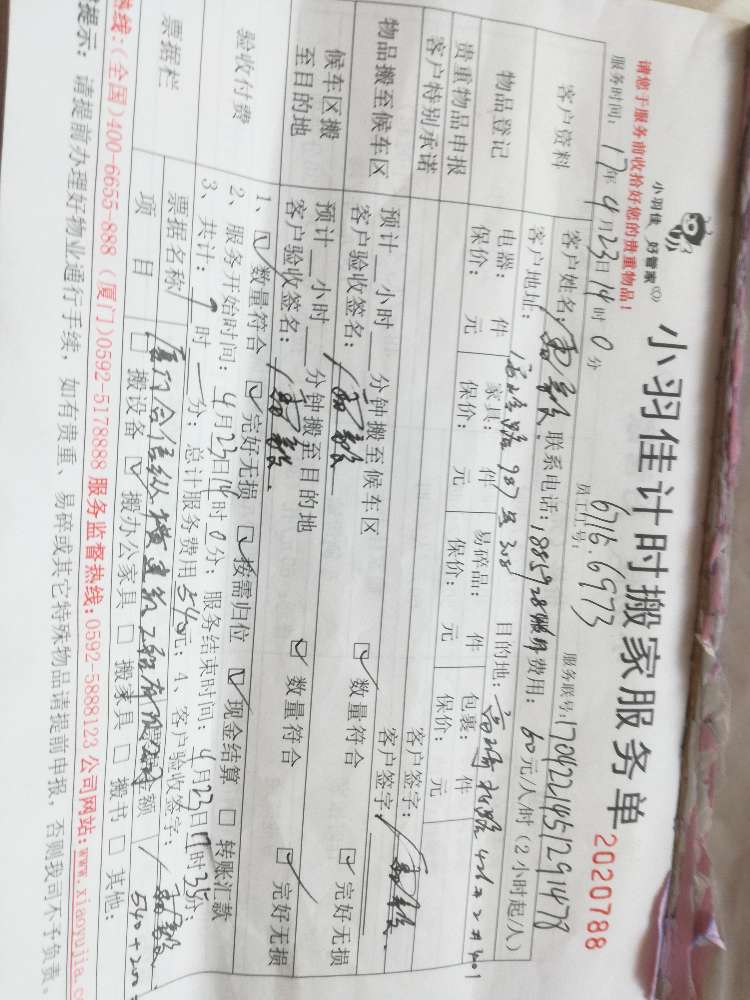 小羽佳 好管家
小羽佳计时搬家服务单
2020788
请您于服务前收拾好您的贵重物品!
员工工号: 6716.6973
服务联号:1704221451291478
服务时间: 17年4月23日14时0分
客户资料
客户姓名:
联系电话:
费用: 60元/人/时(2小时起/人)
客户地址:
目的地:
物品登记
电器: 件 家具: 件 易碎品: 件 包裹: 件
贵重物品申报
保价: 元 保价: 元 保价: 元 保价: 元
客户特别承诺
客户签字:
物品搬至候车区
预计 小时 分钟搬至候车区
客户签字:
客户验收签名:
数量符合 完好无损
候车区搬至目的地
预计 小时 分钟搬至目的地
客户验收签名:
数量符合 完好无损
验收付费
1、 数量符合 完好无损 按需归位 现金结算 转账汇款
2、服务开始时间: 4月23日14时0分; 服务结束时间: 4月23日17时35分;
3、共计: 时 分; 总计服务费用540元; 4、客户验收签字:
票据栏
票据名称
金额 540+200
项目
搬设备 搬办公家具 搬家具 搬书 其他:
热线:(全国)400-6655-888 (厦门)0592-5178888 服务监督热线:0592-5888123 公司网站:www.xiaoyujia.c
提示: 请提前办理好物业通行手续,如有贵重、易碎或其它特殊物品请提前申报,否则我司不予负责。